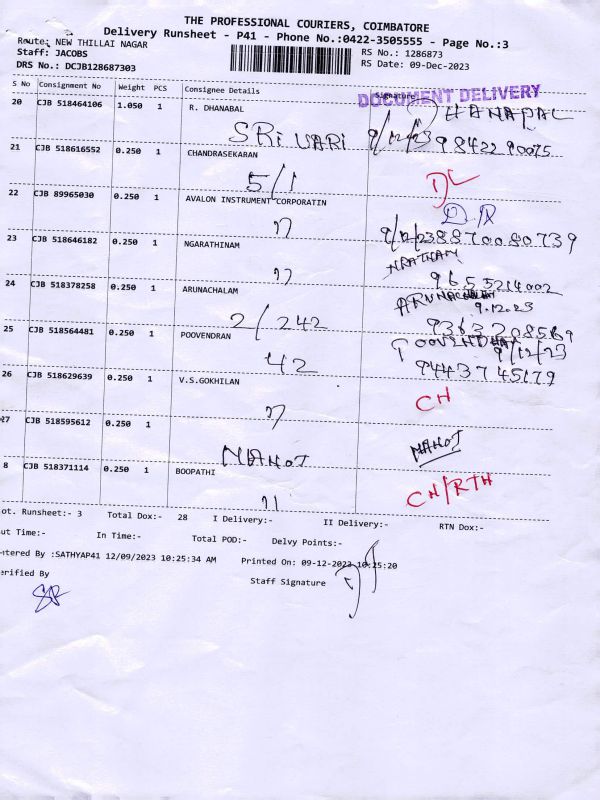 THE PROFESSIONAL COURIERS, COIMBATORE
Delivery Runsheet - P41 - Phone No.:0422-3505555 - Page No.:3
Route: NEW THILLAI NAGAR
RS No.: 1286873
Staff: JACOBS
RS Date: 09-Dec-2023
DRS No.: DCJB128687303
S No Consignment No Weight PCS Consignee Details Signature
DOCUMENT DELIVERY
20 CJB 518464106 1.050 1 R. DHANABAL
DHANAPAL
SRi VARi 9/12/23 9842290075
21 CJB 518616552 0.250 1 CHANDRASEKARAN
5/1 DL
22 CJB 89965030 0.250 1 AVALON INSTRUMENT CORPORATIN
9/12/23 8870080739
23 CJB 518646182 0.250 1 NGARATHINAM
9655214002
24 CJB 518378258 0.250 1 ARUNACHALAM
ARUNACHALAM
9.12.23
2/242 9363208569
25 CJB 518564481 0.250 1 POOVENDRAN
9/12/23
42 9443745179
26 CJB 518629639 0.250 1 V.S.GOKHILAN
CH
27 CJB 518595612 0.250 1
NAHOT NAHOT
8 CJB 518371114 0.250 1 BOOPATHI
11 CH/RTH
ot. Runsheet:- 3 Total Dox:- 28 I Delivery:- II Delivery:- RTN Dox:-
ut Time:- In Time:- Total POD:- Delvy Points:-
ntered By :SATHYAP41 12/09/2023 10:25:34 AM Printed On: 09-12-2023 10:25:20
erified By Staff Signature